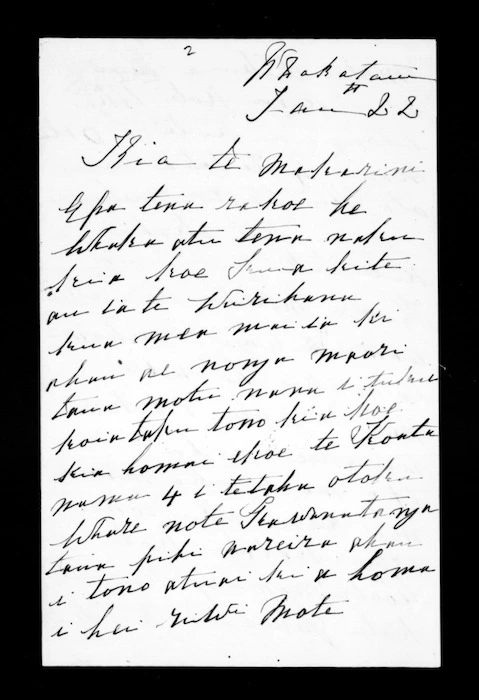 2
Whakatane
Janu 22
Kia te Makarini
E pa tena ra koe he
Whaka atu tena naku
kia koe kua kite
au ia te Wirihana
kua mea mai ia ki
ahau he nonga maori
taua motu nana i
koia taku tono kia koe
kia homai ekoe te Koata
nama 4 i tetaha otoku
Whare note Kawanatanga
taua pihi nareira ahau
i tono atu ai ki a homa
i hei Mote